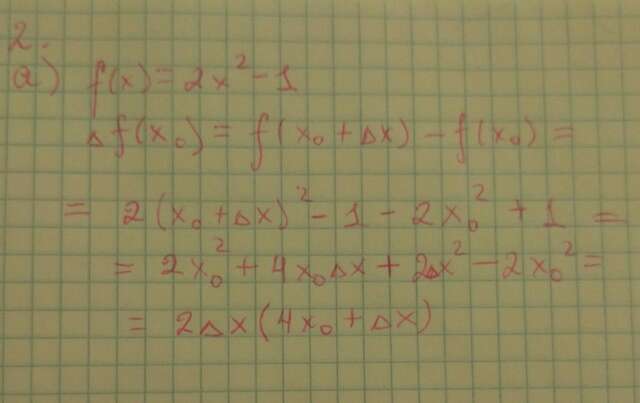 2.
a) f(x) = 2x² - 1
Δf(x₀) = f(x₀ + Δx) - f(x₀) =
= 2(x₀ + Δx)² - 1 - 2x₀² + 1 =
= 2x₀² + 4x₀Δx + 2Δx² - 2x₀² =
= 2Δx(4x₀ + Δx)